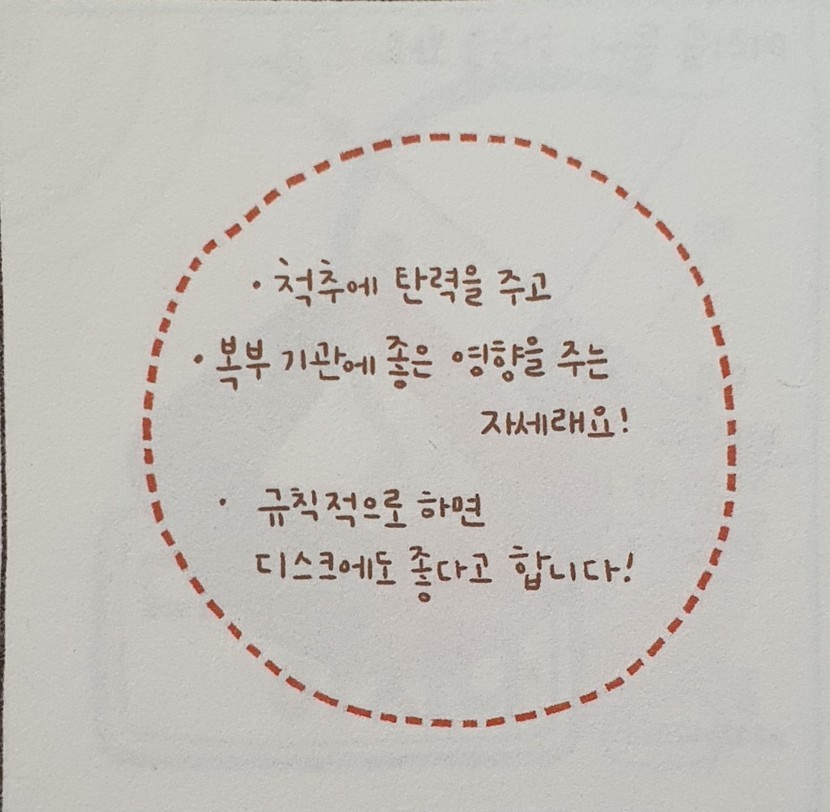 • 척추에 탄력을 주고
• 복부 기관에 좋은 영향을 주는
자세래요!
• 규칙적으로 하면
디스크에도 좋다고 합니다!